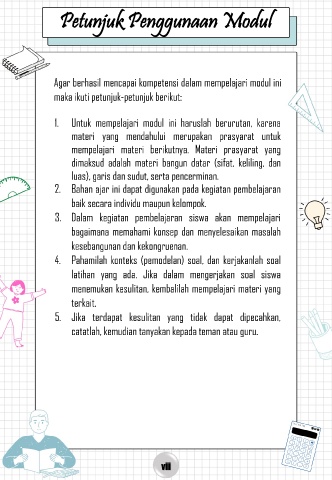 Petunjuk Penggunaan Modul
Agar berhasil mencapai kompetensi dalam mempelajari modul ini
maka ikuti petunjuk-petunjuk berikut:
1. Untuk mempelajari modul ini haruslah berurutan, karena
materi yang mendahului merupakan prasyarat untuk
mempelajari materi berikutnya. Materi prasyarat yang
dimaksud adalah materi bangun datar (sifat, keliling, dan
luas), garis dan sudut, serta pencerminan.
2. Bahan ajar ini dapat digunakan pada kegiatan pembelajaran
baik secara individu maupun kelompok.
3. Dalam kegiatan pembelajaran siswa akan mempelajari
bagaimana memahami konsep dan menyelesaikan masalah
kesebangunan dan kekongruenan.
4. Pahamilah konteks (pemodelan) soal, dan kerjakanlah soal
latihan yang ada. Jika dalam mengerjakan soal siswa
menemukan kesulitan, kembalilah mempelajari materi yang
terkait.
5. Jika terdapat kesulitan yang tidak dapat dipecahkan,
catatlah, kemudian tanyakan kepada teman atau guru.
vii